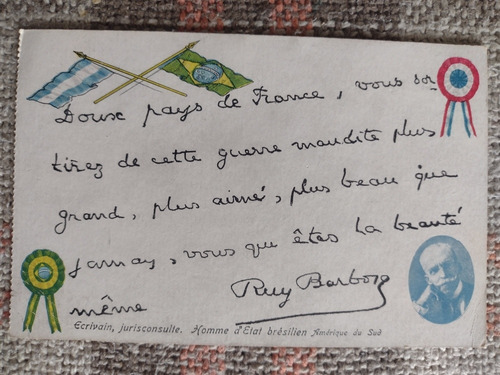 Doux pays de France, vous sor
tirez de cette guerre maudite plus
grand, plus aimé, plus beau que
jamay, vous que êtes la beauté
même
Ruy Barbosa
Ecrivain, jurisconsulte. Homme d'Etat brésilien Amérique du Sud